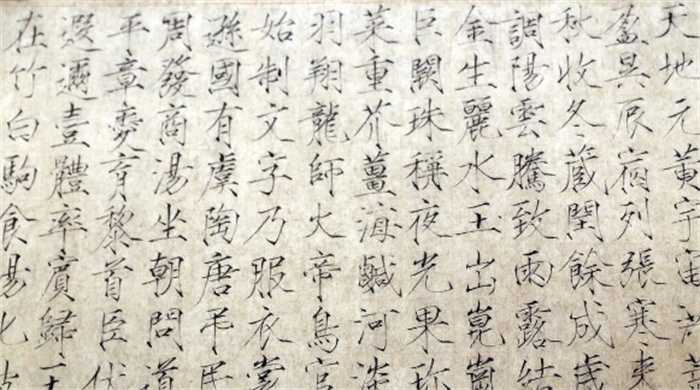 天地元黃宇宙洪
盈昃辰宿列張寒來
秋收冬蔵閏餘成歲
調陽雲騰致雨露結
金生麗水玉出崑崗
巨闕珠稱夜光果珍
菜重芥薑海鹹河淡
羽翔龍師火帝鳥官
始制文字乃服衣裳
遜國有虞陶唐弔民
周發商湯坐朝問道
平章愛育黎首臣伏
遐邇壹體率賓歸王
在竹白駒食場化被